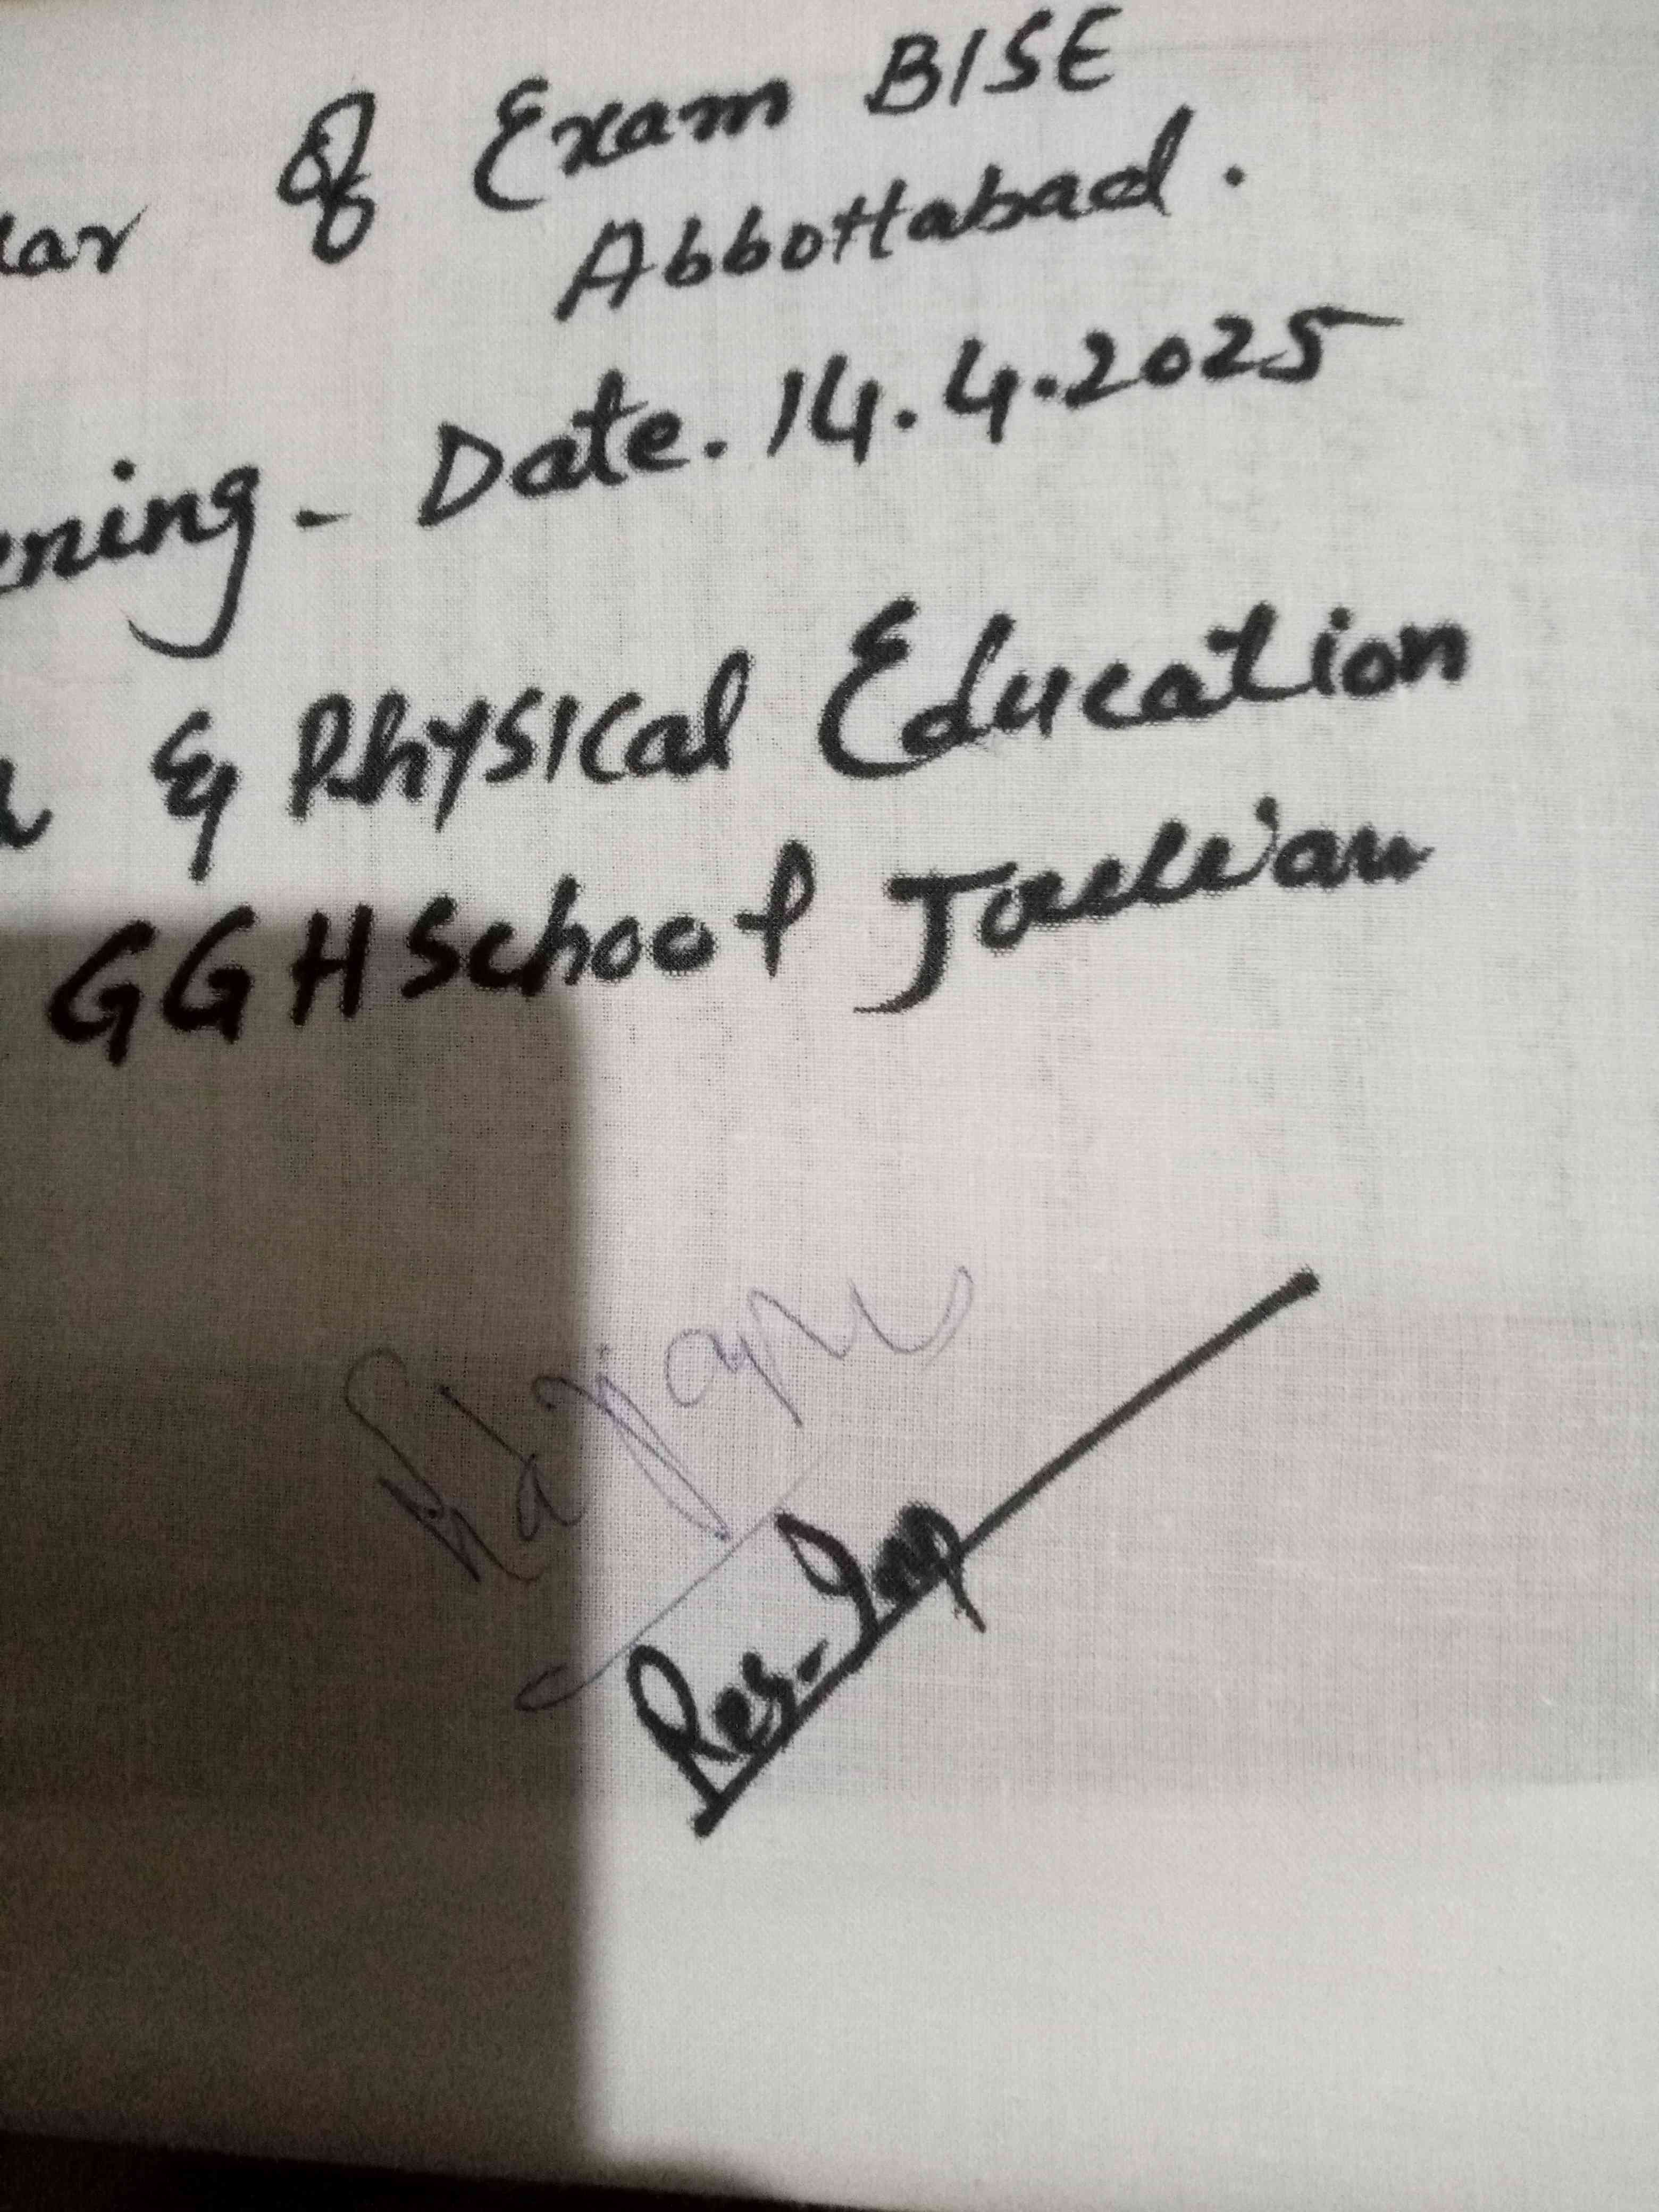 lar of Exam BISE
Abbottabad.
ning - Date. 14.4.2025
& Physical Education
GGHSchool
Res-